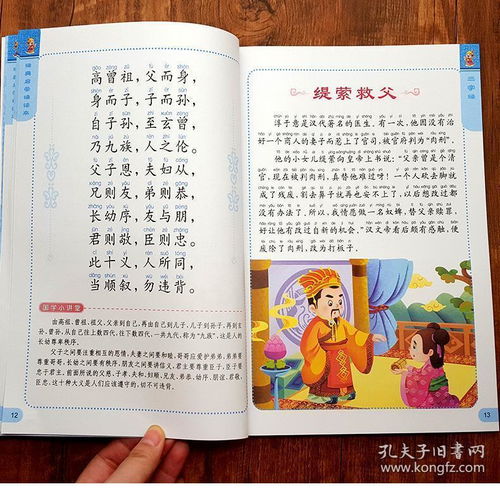 经典启蒙诵读本
高曾祖，父而身，
身而子，子而孙，
自子孙，至玄曾，
乃九族，人之伦。
父子恩，夫妇从，
兄则友，弟则恭，
长幼序，友与朋，
君则敬，臣则忠。
此十义，人所同，
当顺叙，勿违背。
国学小讲堂
由高祖、曾祖、祖父、父亲到自己，再由自己到儿子、儿子到孙子，再到玄
孙、曾孙，从自己往上数四代，往下数四代，一共九代，称为“九族”，这是人的
长幼尊卑秩序。
父子之间要注重相互的恩情，夫妻之间要和睦，哥哥应爱护弟弟，弟弟要
尊重哥哥，长幼之间要有秩序，朋友之间要讲信义，君主要尊重臣子，臣子要
忠于君主。前面所说的父慈、子孝、夫和、妇顺、兄友、弟恭、幼序、朋谊、君敬、
臣忠，这十种大义是人们应该遵守的，切不可违背。
12
三字经
缇萦救父
淳于意是汉代著名的医生，有一次，他因没有治
好一个商人的妻子而惹上了官司，被官府判为“肉刑”。
他的小女儿缇萦向皇帝上书说：“父亲曾是个清
官，现在被判肉刑，真替他难过！一个人砍去脚就
成了残废，割去鼻子就再也安不上了，以后想改过都
没有办法了。所以，我情愿做一名奴婢，替父亲赎罪，
好让他有改过自新的机会。”汉文帝看后颇有感触，便
废除了肉刑，改为打板子。
13
孔夫子旧书网
www.kongfz.com